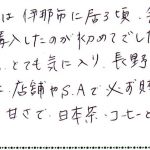 は伊那市に居る頃、
購入したのが初めてでした
、とても気に入り、長野
に店舗やS.Aで必ず購
甘さで、日本茶・コーヒーと